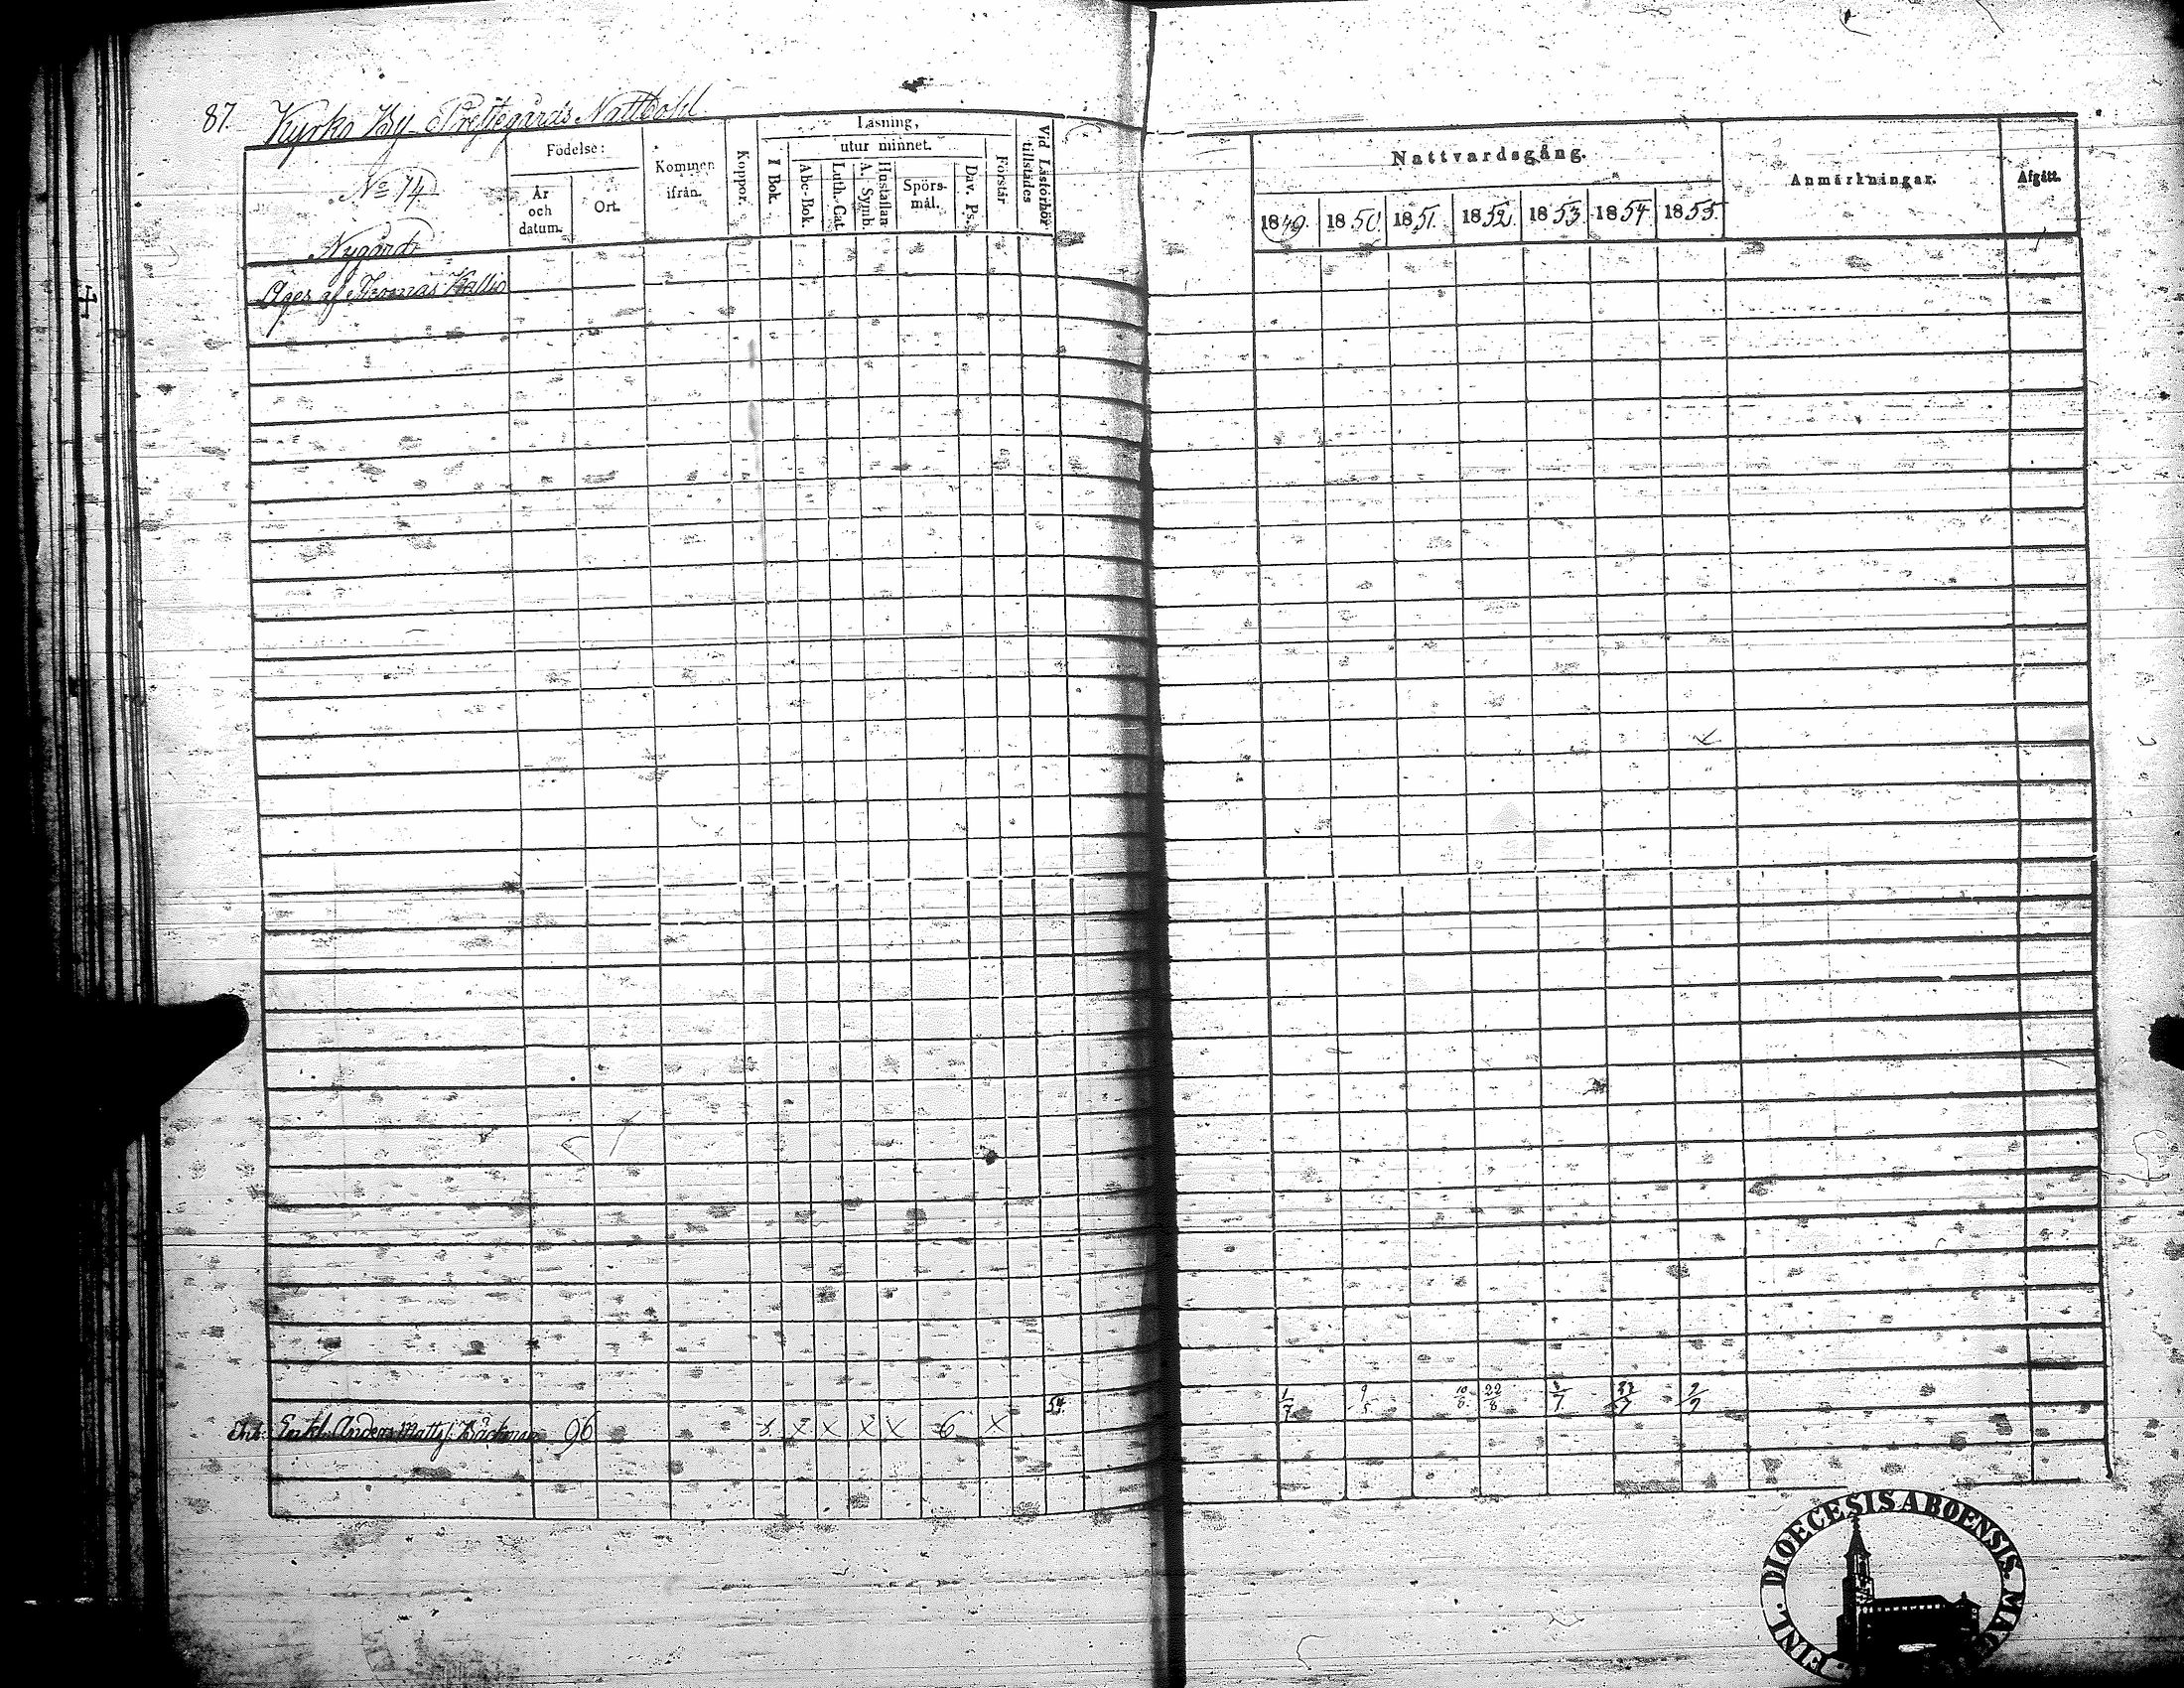 87. Kyrko By Prestegårds Nattbohl
No 14
Nygård
Äges af Thomas Kallio
Födelse:
År och datum.
Ort.
Kommen ifrån.
Koppor.
Läsning,
utur minnet.
I Bok.
Abc-Bok.
Luth.-Cat
A. Symb.
Hustaflan
Spörs-mål.
Dav. Ps.
Förstår
Vid Läsförhör tillstädes
Nattvardsgång.
1849. 1850. 1851. 1852. 1853. 1854. 1855.
Anmärkningar.
Afgått.
54.
1/7 9/5 10/8 22/8 3/7 23/7 9/7
Enk: Anders Matts: Bäckman 96 x x x x x 6 x
FINL. DIOECESIS ABOENSIS. MAG